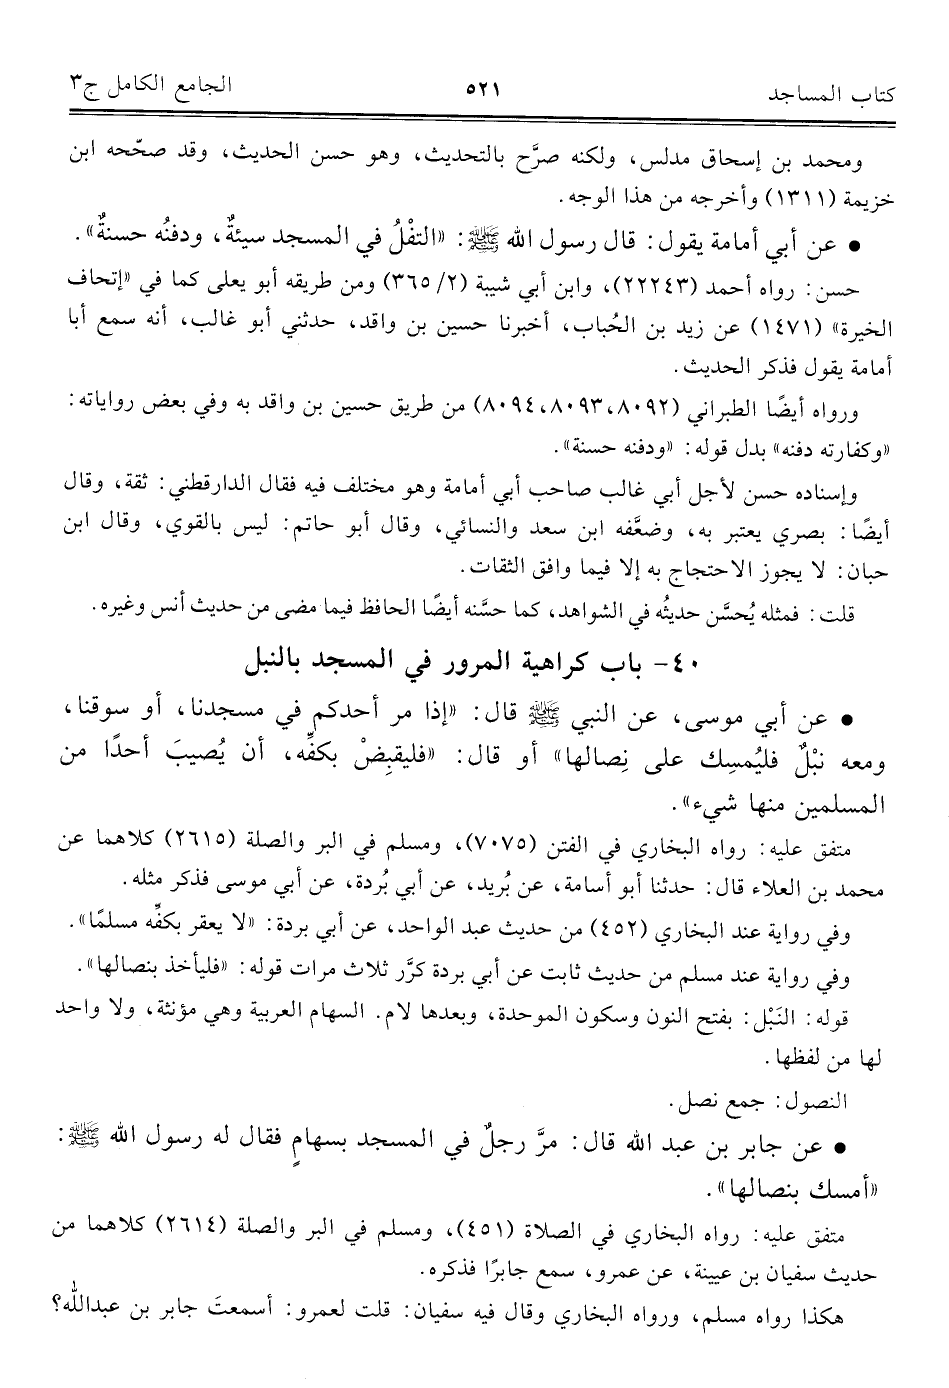 كتاب المساجد ٥٢١ الجامع الكامل ج٣
ومحمد بن إسحاق مدلس، ولكنه صرَّح بالتحديث، وهو حسن الحديث، وقد صحّحه ابن
خزيمة (١٣١١) وأخرجه من هذا الوجه.
• عن أبي أمامة يقول: قال رسول الله ﷺ: «التفْلُ في المسجد سيئةٌ، ودفنُه حسنةٌ».
حسن: رواه أحمد (٢٢٢٤٣)، وابن أبي شيبة (٢/ ٣٦٥) ومن طريقه أبو يعلى كما في «إتحاف
الخيرة» (١٤٧١) عن زيد بن الحُباب، أخبرنا حسين بن واقد، حدثني أبو غالب، أنه سمع أبا
أمامة يقول فذكر الحديث.
ورواه أيضًا الطبراني (٨٠٩٢، ٨٠٩٣، ٨٠٩٤) من طريق حسين بن واقد به وفي بعض رواياته:
«وكفارته دفنه» بدل قوله: «ودفنه حسنة».
وإسناده حسن لأجل أبي غالب صاحب أبي أمامة وهو مختلف فيه فقال الدارقطني: ثقة، وقال
أيضًا: بصري يعتبر به، وضعَّفه ابن سعد والنسائي، وقال أبو حاتم: ليس بالقوي، وقال ابن
حبان: لا يجوز الاحتجاج به إلا فيما وافق الثقات.
قلت: فمثله يُحسَّن حديثُه في الشواهد، كما حسَّنه أيضًا الحافظ فيما مضى من حديث أنس وغيره.
٤٠- باب كراهية المرور في المسجد بالنبل
• عن أبي موسى، عن النبي ﷺ قال: «إذا مر أحدكم في مسجدنا، أو سوقنا،
ومعه نبْلٌ فليُمسِك على نِصالها» أو قال: «فليقبِضْ بكفِّه، أن يُصيبَ أحدًا من
المسلمين منها شيء».
متفق عليه: رواه البخاري في الفتن (٧٠٧٥)، ومسلم في البر والصلة (٢٦١٥) كلاهما عن
محمد بن العلاء قال: حدثنا أبو أسامة، عن بُريد، عن أبي بُردة، عن أبي موسى فذكر مثله.
وفي رواية عند البخاري (٤٥٢) من حديث عبد الواحد، عن أبي بردة: «لا يعقر بكفِّه مسلمًا».
وفي رواية عند مسلم من حديث ثابت عن أبي بردة كرَّر ثلاث مرات قوله: «فليأخذ بنصالها».
قوله: النَبْل: بفتح النون وسكون الموحدة، وبعدها لام. السهام العربية وهي مؤنثة، ولا واحد
لها من لفظها.
النصول: جمع نصل.
• عن جابر بن عبد الله قال: مرَّ رجلٌ في المسجد بسهامٍ فقال له رسول الله ﷺ:
«أمسك بنصالها».
متفق عليه: رواه البخاري في الصلاة (٤٥١)، ومسلم في البر والصلة (٢٦١٤) كلاهما من
حديث سفيان بن عيينة، عن عمرو، سمع جابرًا فذكره.
هكذا رواه مسلم، ورواه البخاري وقال فيه سفيان: قلت لعمرو: أسمعتَ جابر بن عبدالله؟